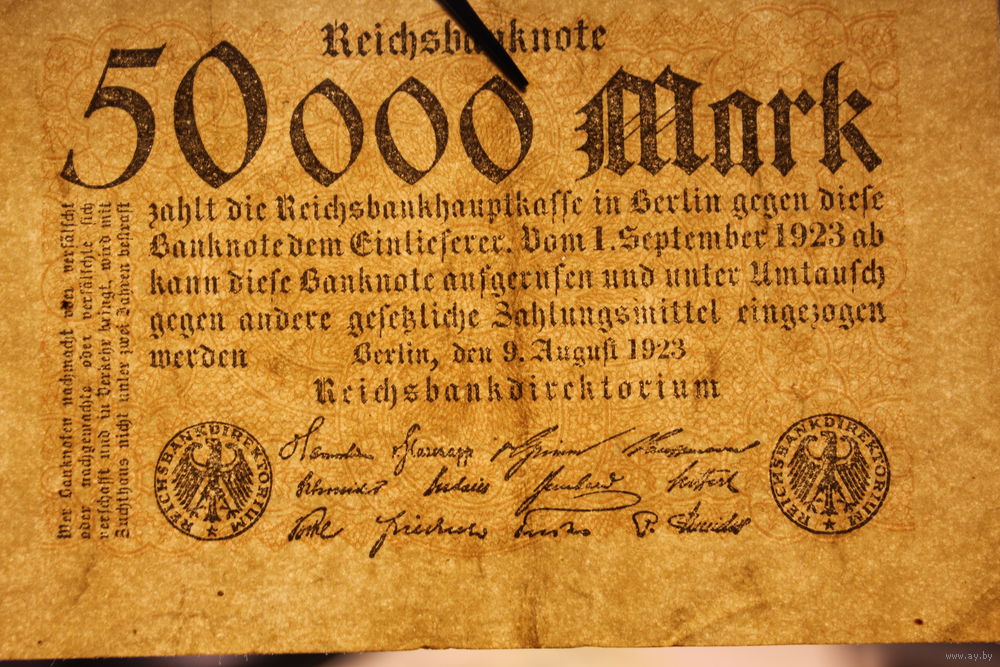 Reichsbanknote
50000 Mark
zahlt die Reichsbankhauptkasse in Berlin gegen diese
Banknote dem Einlieferer. Vom 1. September 1923 ab
kann diese Banknote aufgerufen und unter Umtausch
gegen andere gesetzliche Zahlungsmittel eingezogen
werden
Berlin, den 9. August 1923
Reichsbankdirektorium
Wer Banknoten nachmacht oder verfälscht
oder nachgemachte oder verfälschte sich
verschafft und in Verkehr bringt, wird mit
Zuchthaus nicht unter zwei Jahren bestraft
REICHSBANKDIREKTORIUM
REICHSBANKDIREKTORIUM
www.ay.by